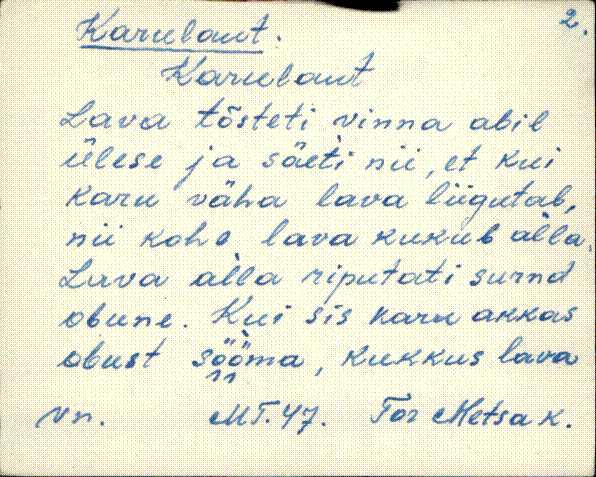 2.
Karulaut.
Karulaut
Lava tõsteti vinna abil
ülese ja säeti nii, et kui
karu väha lava liigutab,
nii kohe lava kukub alla.
Lava alla riputati surnd
obune. Kui sis karu akkas
obust sööma, kukkus lava
vn. MT.47. Tor Metsa k.